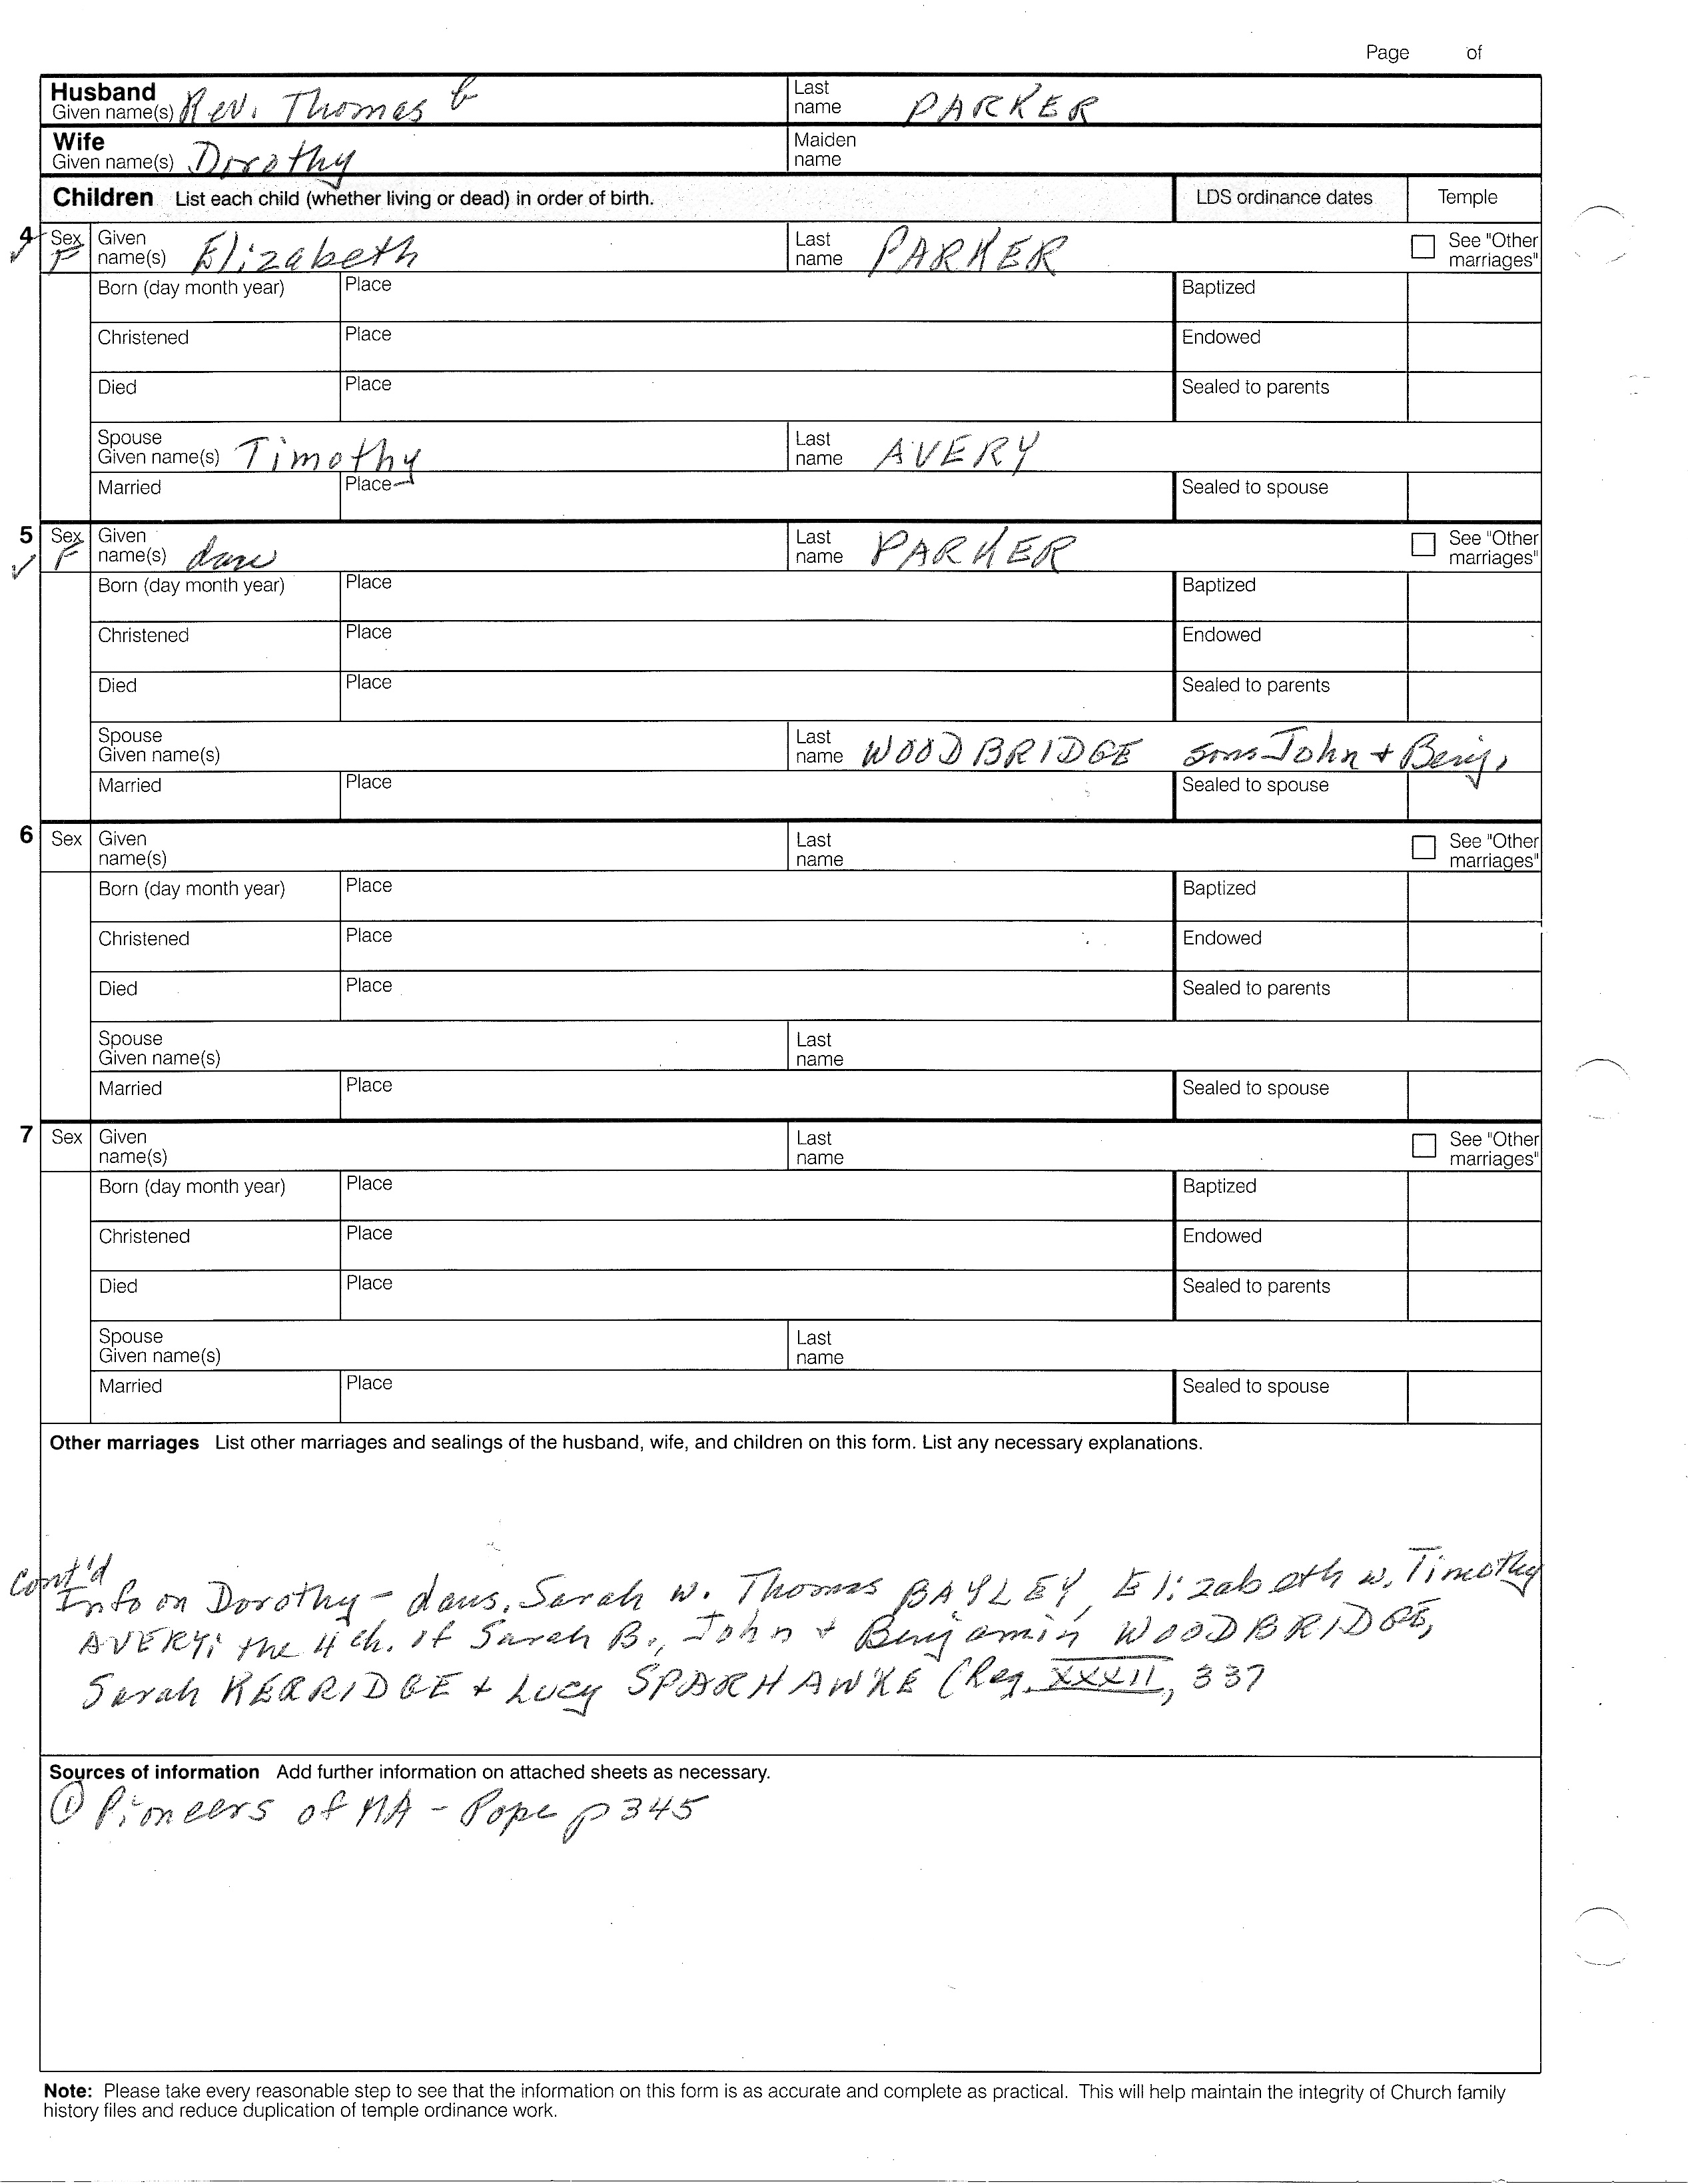 Page of
Husband
Given name(s) Rev. Thomas Last name PARKER
Wife
Given name(s) Dorothy Maiden name
Children List each child (whether living or dead) in order of birth. LDS ordinance dates Temple
4 Sex F Given name(s) Elizabeth Last name PARKER See "Other marriages"
Born (day month year) Place Baptized
Christened Place Endowed
Died Place Sealed to parents
Spouse Given name(s) Timothy Last name AVERY
Married Place Sealed to spouse
5 Sex F Given name(s) dau Last name PARKER See "Other marriages"
Born (day month year) Place Baptized
Christened Place Endowed
Died Place Sealed to parents
Spouse Given name(s) Last name WOODBRIDGE sons John + Benj.
Married Place Sealed to spouse
6 Sex Given name(s) Last name See "Other marriages"
Born (day month year) Place Baptized
Christened Place Endowed
Died Place Sealed to parents
Spouse Given name(s) Last name
Married Place Sealed to spouse
7 Sex Given name(s) Last name See "Other marriages"
Born (day month year) Place Baptized
Christened Place Endowed
Died Place Sealed to parents
Spouse Given name(s) Last name
Married Place Sealed to spouse
Other marriages List other marriages and sealings of the husband, wife, and children on this form. List any necessary explanations.
Cont'd
Info on Dorothy - daus. Sarah w. Thomas BAYLEY, Elizabeth w. Timothy
AVERY; the 4 ch. of Sarah B., John + Benjamin WOODBRIDGE,
Sarah KERRIDGE + Lucy SPARHAWKE (Reg. XXXII, 337
Sources of information Add further information on attached sheets as necessary.
① Pioneers of MA - Pope p 345
Note: Please take every reasonable step to see that the information on this form is as accurate and complete as practical. This will help maintain the integrity of Church family
history files and reduce duplication of temple ordinance work.